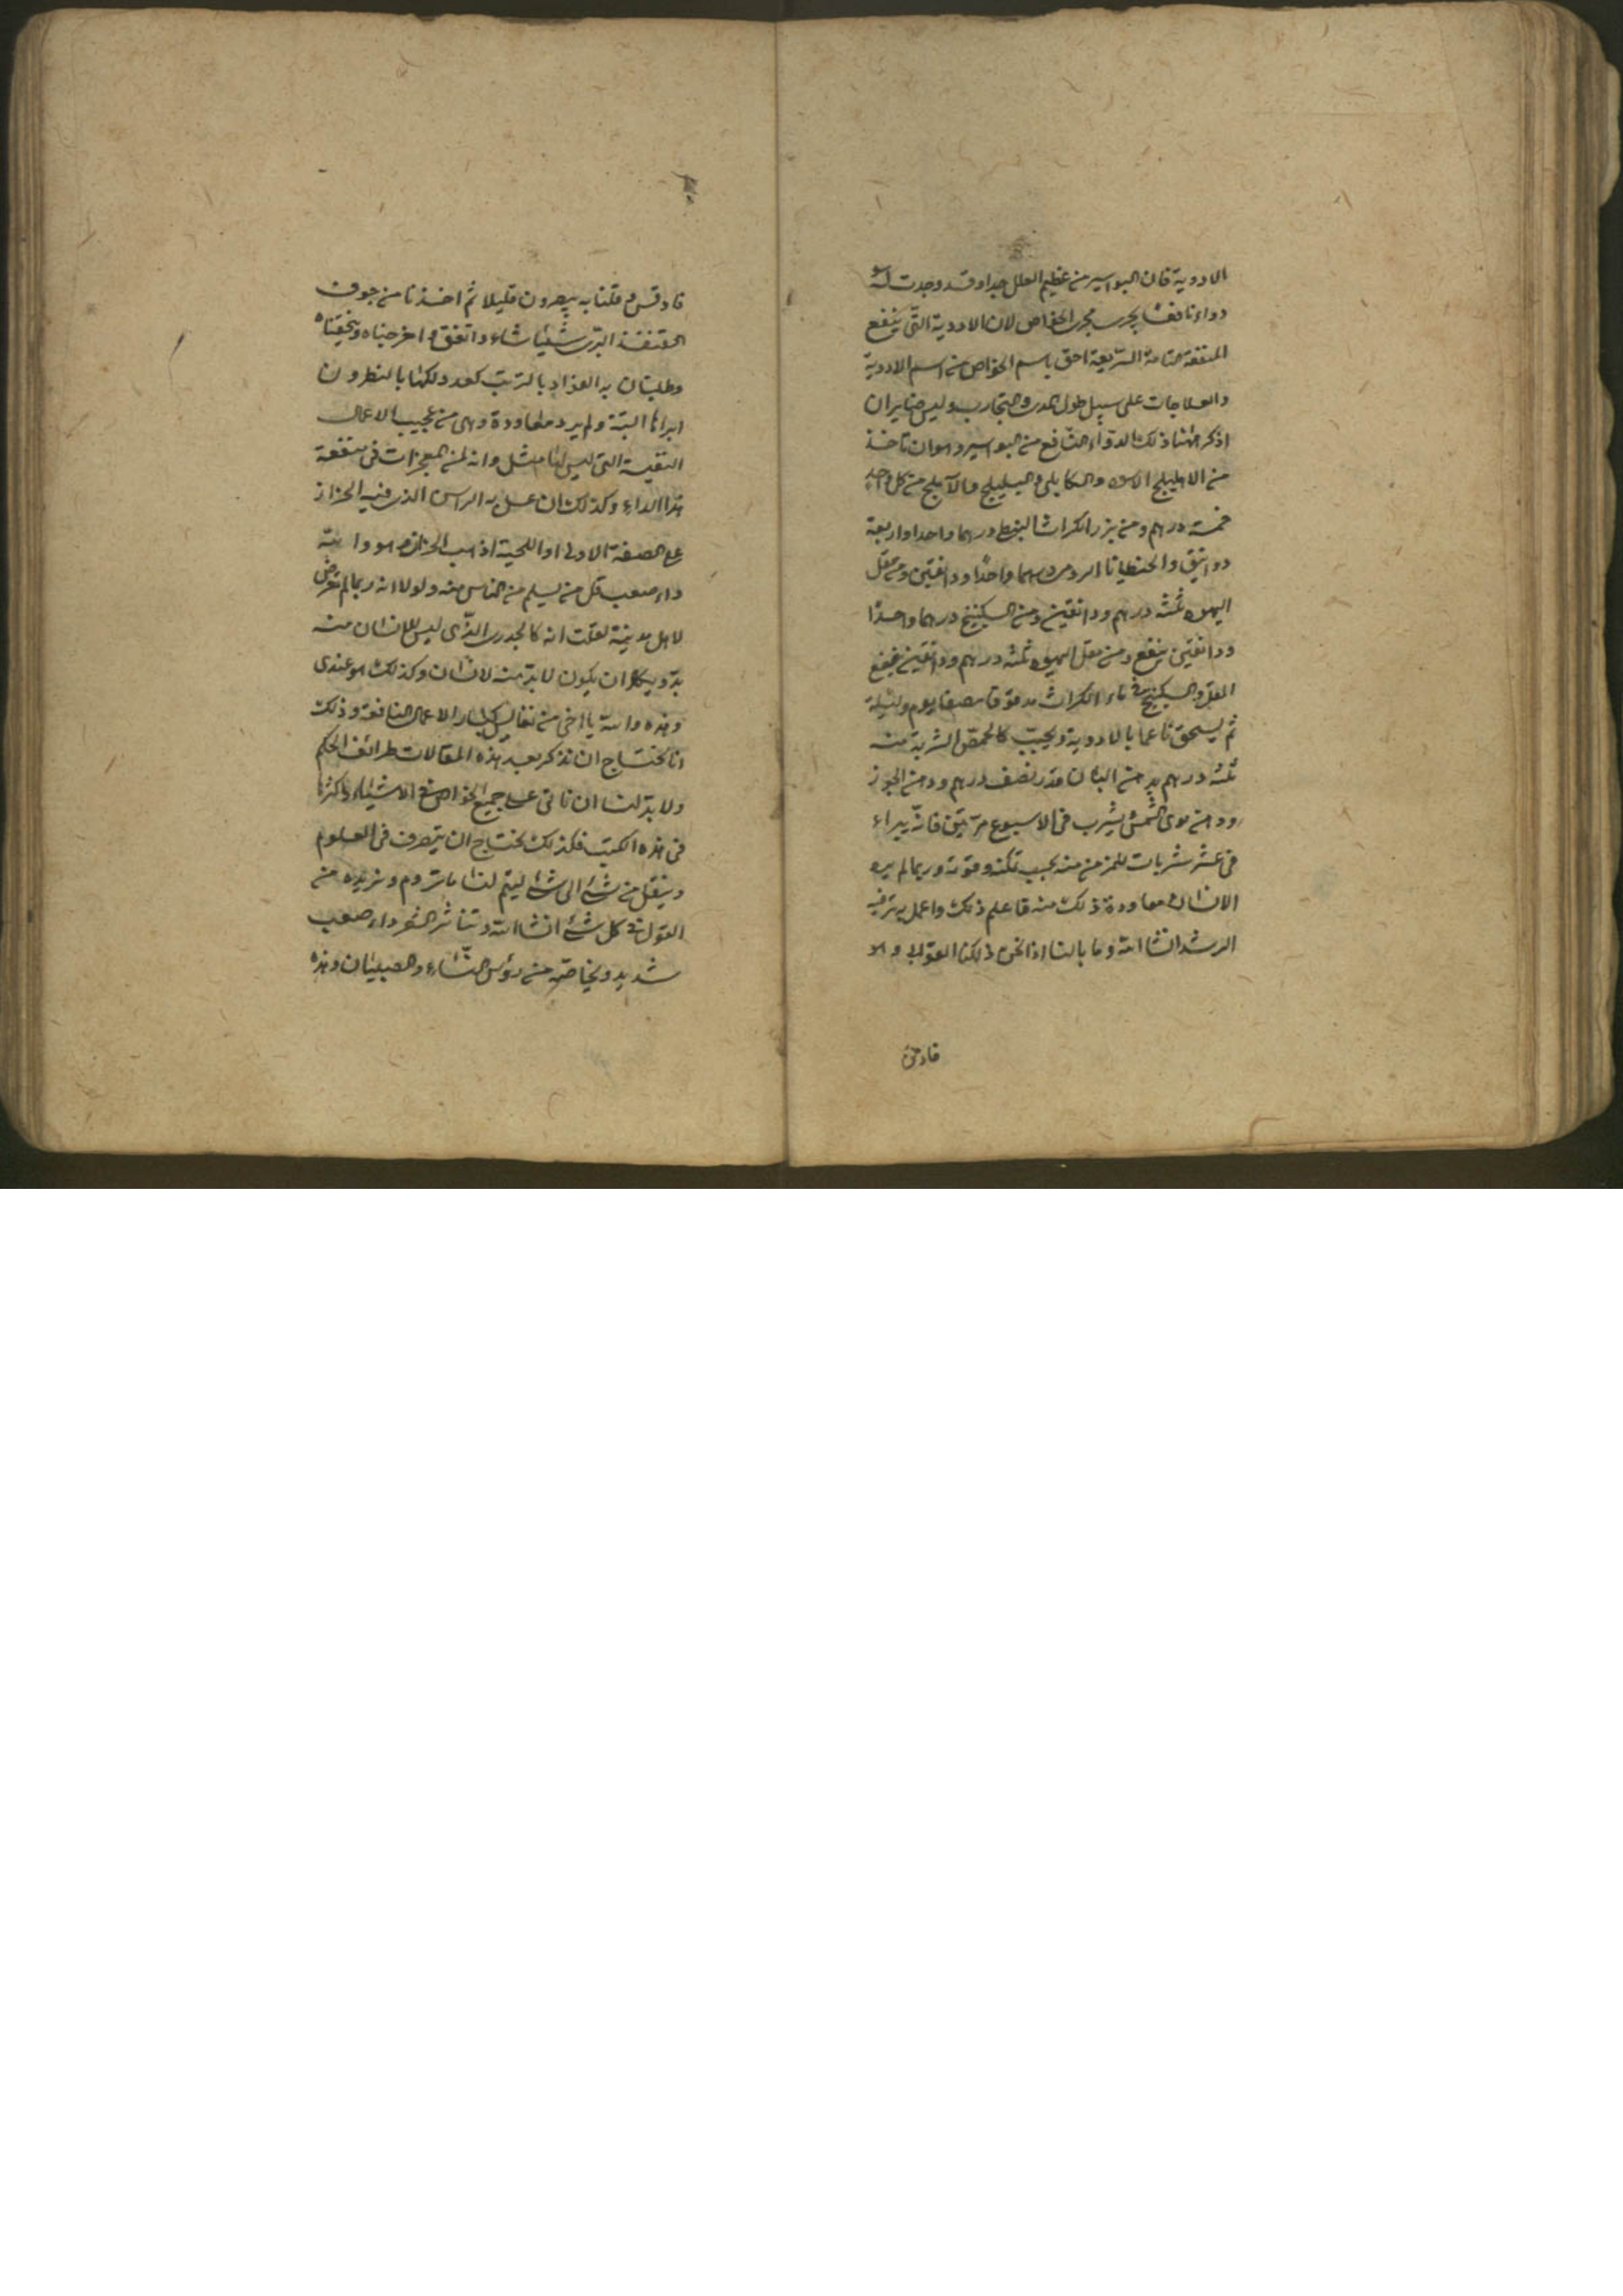 الادوية فان البواسير من عظيم العلل جدا وقد وجدت له
دواء نافعا يجرى مجرى الخواص لان الادوية التى ينفع
المنفعة التامة السريعة احق باسم الخواص من اسم الادوية
والعلاجات على سبيل طول المدى والتجارب وليس ضاير ان
اذكر ههنا ذلك الدواء النافع من البواسير وهو ان تاخذ
من الاهليلج الاسود والكابلى والبليلج والآملج من كل واحد
خمسة درهم ومن بزر الكراث النبطى درهما واحدا واربعة
دوانيق والجنطيانا الرومى درهما واحدا ودانقين ومن مقل
اليهود ثلثة درهم ودانقين ومن السكبينج درهما واحدا
ودانقين ينقع ومن مقل اليهود ثلثة درهم ودانقين ينقع
المقل والسكبينج فى ماء الكراث مدقوقا مصفا يوم وليلة
ثم يسحق ناعما بالادوية ويحبب كالحمص الشربة منه
ثلثة درهم بدهن البان قدر نصف درهم ودهن الجوز
ودهن نوى المشمش يشرب فى الاسبوع مرتين فانه يبراء
فى عشر شربات للمزمن منه بحسب تمكنه وقوته وربما لم يره
الانسان معاودة ذلك منه فاعلم ذلك واعمل به ترفيه
الرشد انشا الله وما بالنا اذا نحن دلكنا القوابى وهو
فادمى
فادمى قلنا به بيصرون قليلا ثم اخذنا من جوف
القنفذ البرى شيئا شاء واتفق واخرجناه وسحقناه
وطليان به الفؤاد بالترتيب كعد دلكنا بالنطرون
ابراها البتة ولم يرد معاودة وهى من عجيب الاعمال
النفيسة التى ليس لها مثل وانه لمن المعجزات فى منفعة
هذا الداء وكذلك ان عمل به الراس الذى فيه الحزاز
على الصفة الاولى او اللحية اذهب الحزاز وهو والله
داء صعب قل من يسلم من الناس منه ولولا انه ربما لم تعرض
لاهل مدينة لقلت انه كالجدرى الذى ليس للانسان منه
بد ويكاد ان يكون لا بد منه لانسان وكذلك هو عندى
وهذه والله يا اخى من نفايس كبار الاعمال النافعة وذلك
انا نحتاج ان نذكر بعد هذه المقالات طرائف الحكم
ولا بد لنا ان ناتى على جميع الخواص فى الاشياء واكثرها
فى هذه الكتب فلذلك نحتاج ان يتصرف فى العلوم
وينقل من شئ الى شئ ليتم لنا ما نروم ونريده من
القول فى كل شئ انشا الله وتناثر الشعر داء صعب
شديد وبخاصة من رؤس النساء والصبيان وهذه